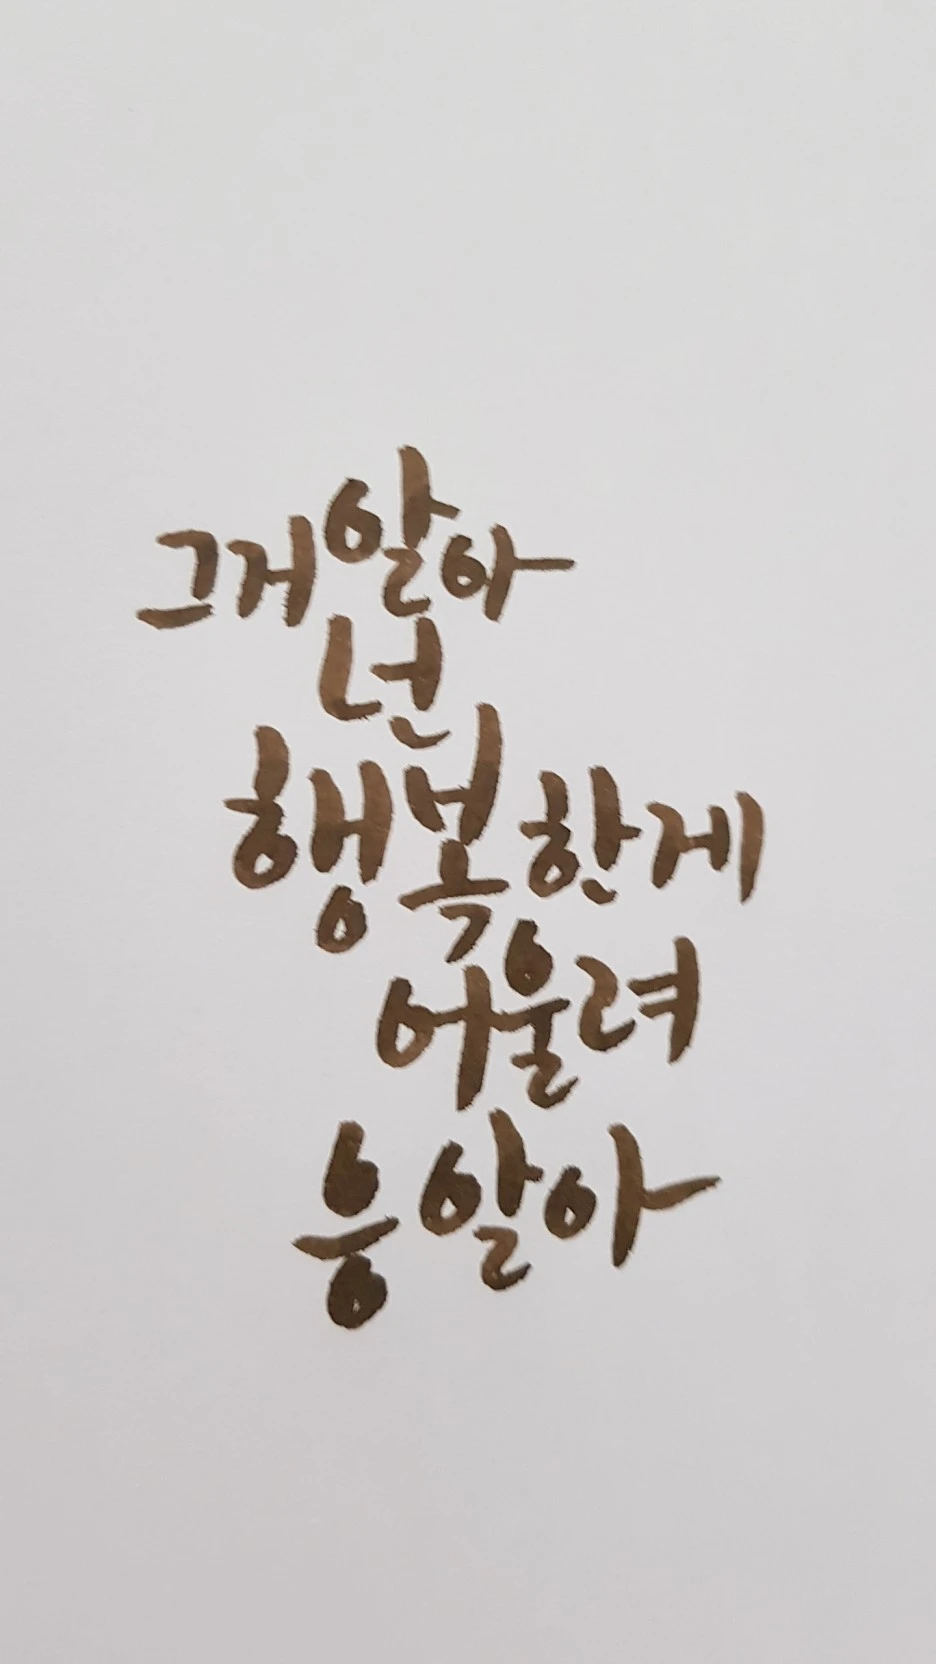 그거 알아
넌
행복한게
어울려
응 알아